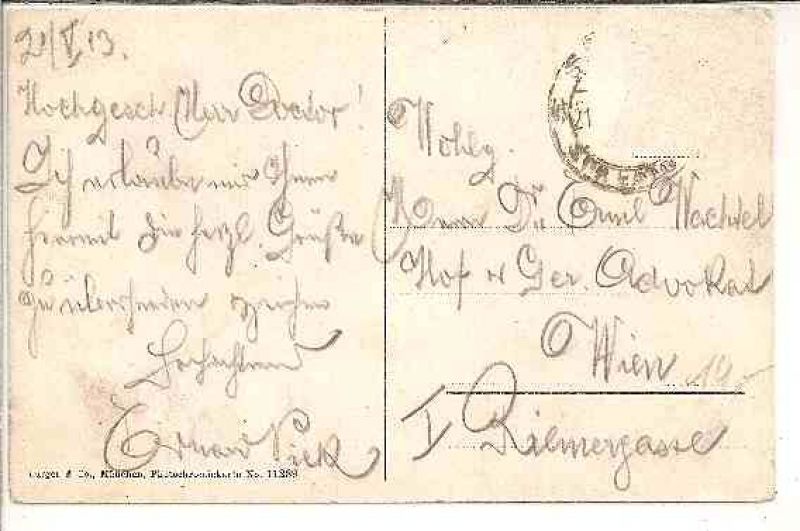 21/V 13.
Hochgesch Herr Doctor!
Ich erlaube mir Ihnen
hiermit die herzl. Grüße
zu übersenden zeichne
Hochachtend
Pick
Co., München, Photochromiekarte No. 11289
Wohlg.
Herrn Dr. Emil Wachtel
Hof u Ger. Advokat
Wien
I Riemergasse